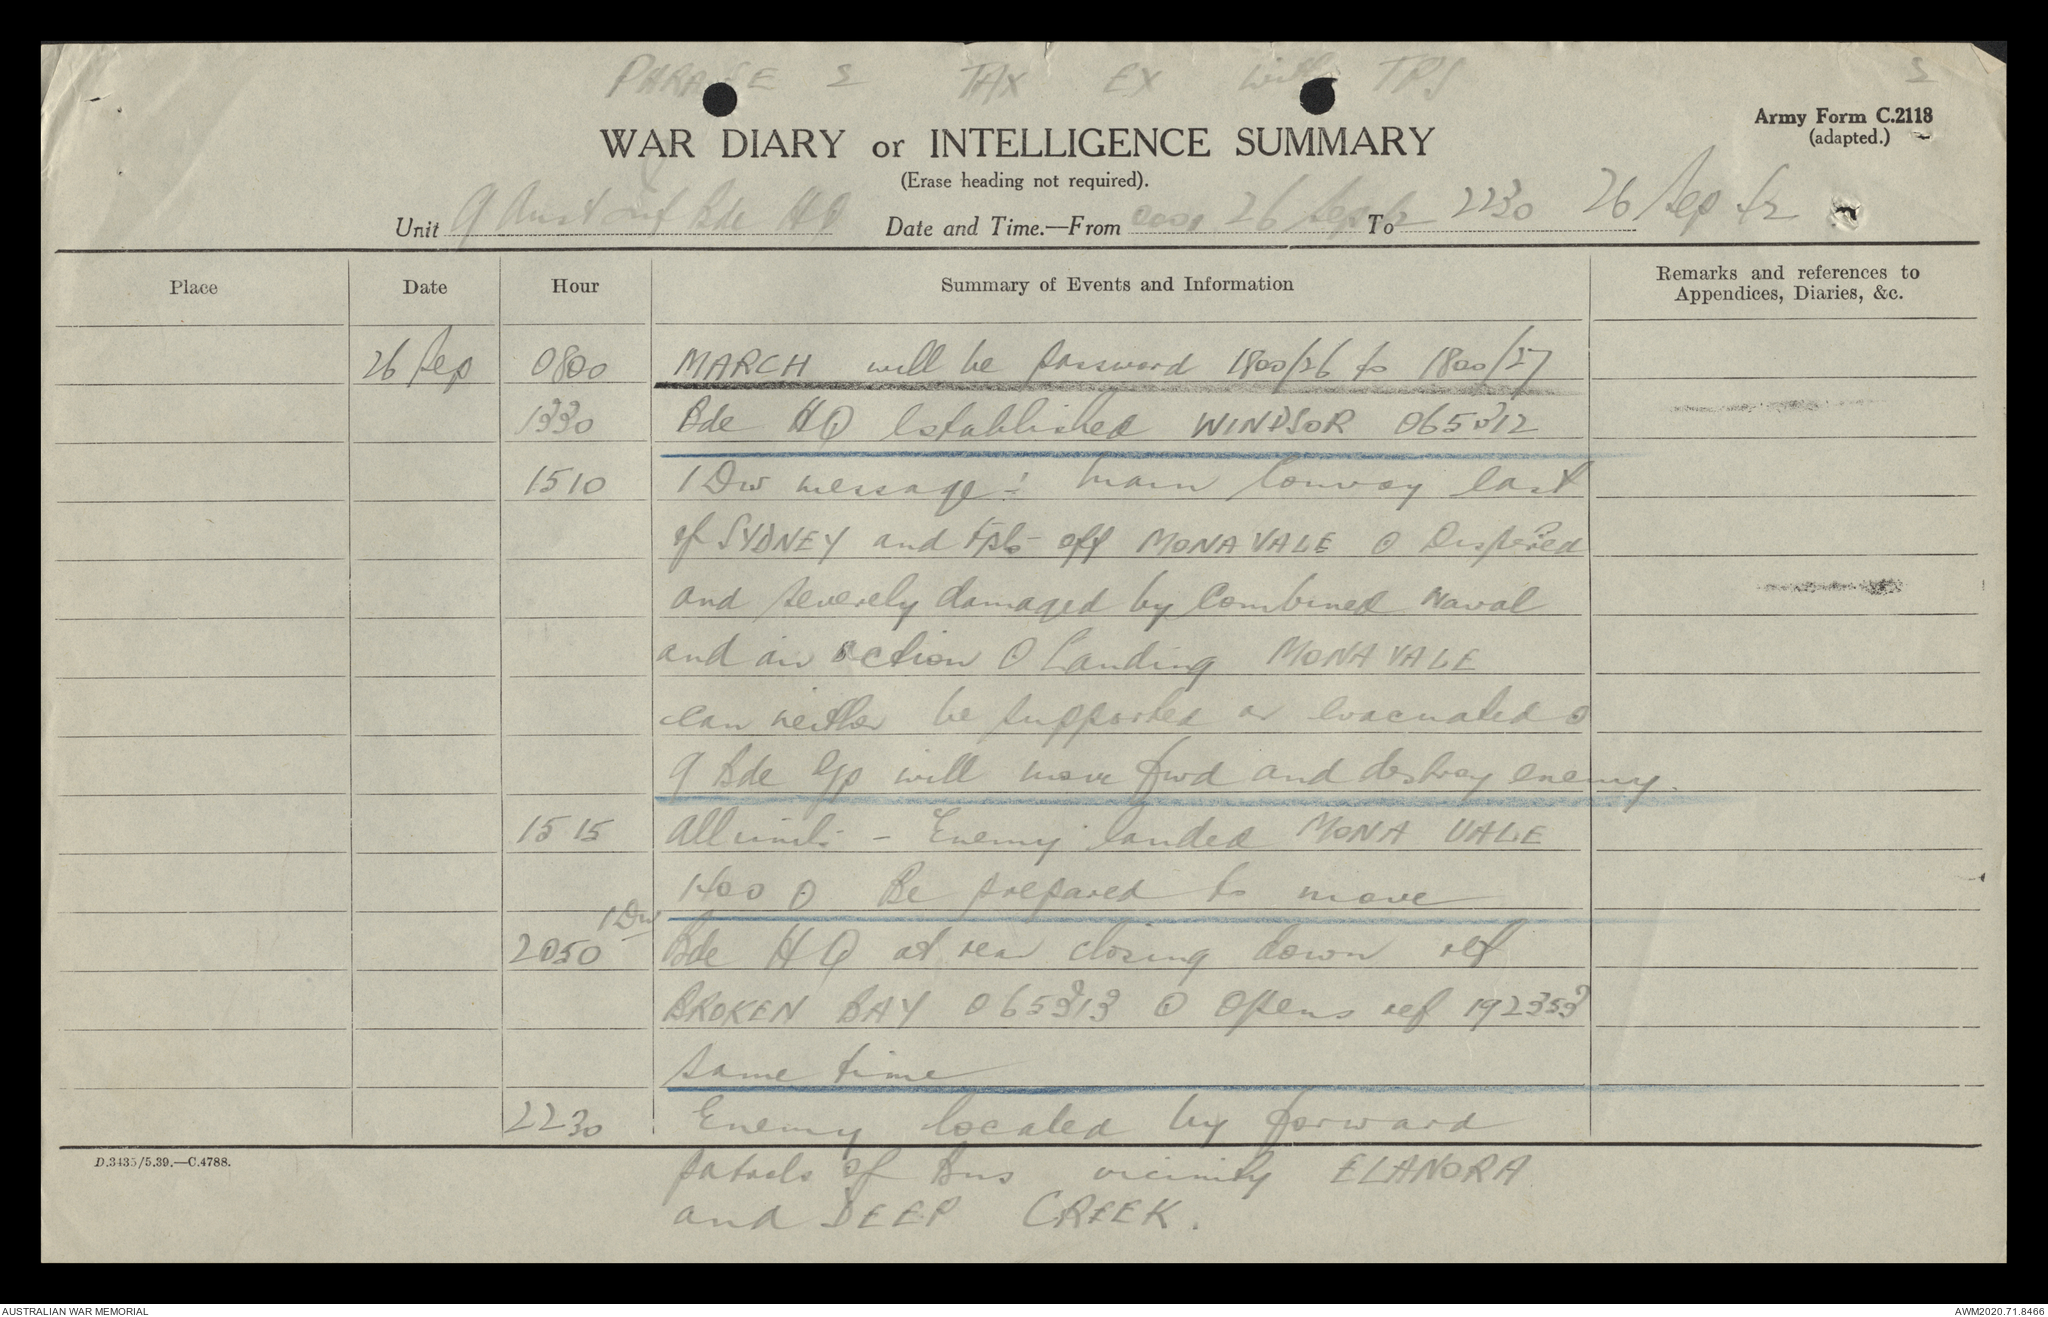 PHRASE 2 TAX EX with TPS
2
Army Form C.2118
(adapted.)
WAR DIARY or INTELLIGENCE SUMMARY
(Erase heading not required).
Unit 9 Aust Inf Bde HQ Date and Time.—From 0001 26 Sep 42 To 2230 26 Sep 42
Place Date Hour Summary of Events and Information Remarks and references to
Appendices, Diaries, &c.
26 Sep 0800 MARCH will be password 1800/26 to 1800/27
1330 Bde HQ established WINDSOR 065312
1510 1 Div message: Main Convoy East
of SYDNEY and tpts off MONA VALE ⊙ Dispersed
and severely damaged by Combined Naval
and air action ⊙ Landing MONA VALE
can neither be supported or evacuated ⊙
9 Bde Gp will move fwd and destroy enemy.
1515 All units - Enemy landed MONA VALE
1400 ⊙ Be prepared to move
1 Div
2050 Bde HQ at rear closing down ref
BROKEN BAY 065313 ⊙ Opens ref 192353
same time
2230 Enemy located by forward
D.3435/5.39.—C.4788.
patrols of Bns vicinity ELANORA
and DEEP CREEK.
AUSTRALIAN WAR MEMORIAL AWM2020.71.8466